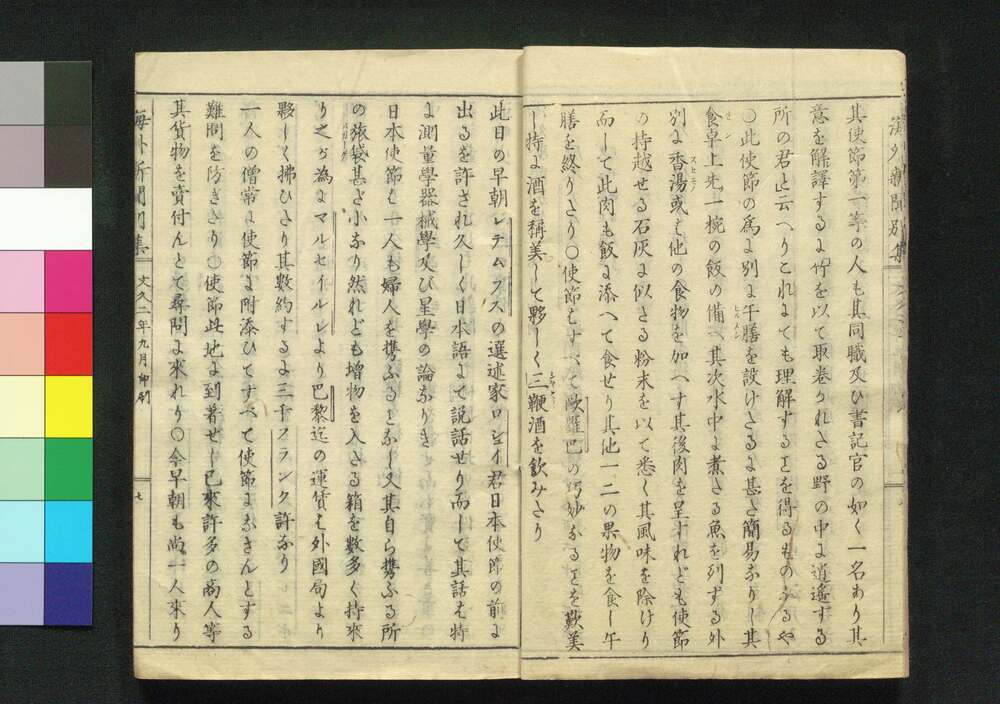 其使節第一等の人も其同職及ひ書記官の如く一名あり其
意を解譯するよ竹を以て取巻かれたる野の中よ逍遙する
所の君と云へりこれよても理解するを得るものなるや
○此使節の爲よ別よ午膳を設けたるよ甚た簡易なりし其
食卓上先一椀の飯の備へ其次水中よ煮たる魚を列する外
別よ香湯或は他の食物を加へす其後肉を呈すれども使節
の持越せる石灰よ似たる粉末を以て悉く其風味を除けり
而して此肉も飯よ添へて食せり其他一二の果物を食し午
膳を終りたり○使節もすへて歐羅巴の巧妙なるを歎美
し持よ酒を稱美して夥しく三鞭酒を飲みたり
此日の早朝レデムプスの選述家ロシイ君日本使節の前よ
出るを許され久しく日本語よて説話せり而して其話は持
よ測量學器械學及び星學の論なりき
日本使節は一人も婦人を携ふるなし又其自ら携ふる所
の旅袋甚た小なり然れども増物を入たる箱を數多く持來
り之か為よマルセイルレより巴黎迄の運賃は外國局より
夥しく拂ひたり其數約するよ三千フランク許なり
一人の僧常よ使節よ附添ひてすへて使節よなさんとする
難問を防きたり○使節此地よ到着せし已來許多の商人等
其貨物を賣付んとて尋問よ來れり○今早朝も尚一人來り
海外新聞別集 文久二年九月印刷 七